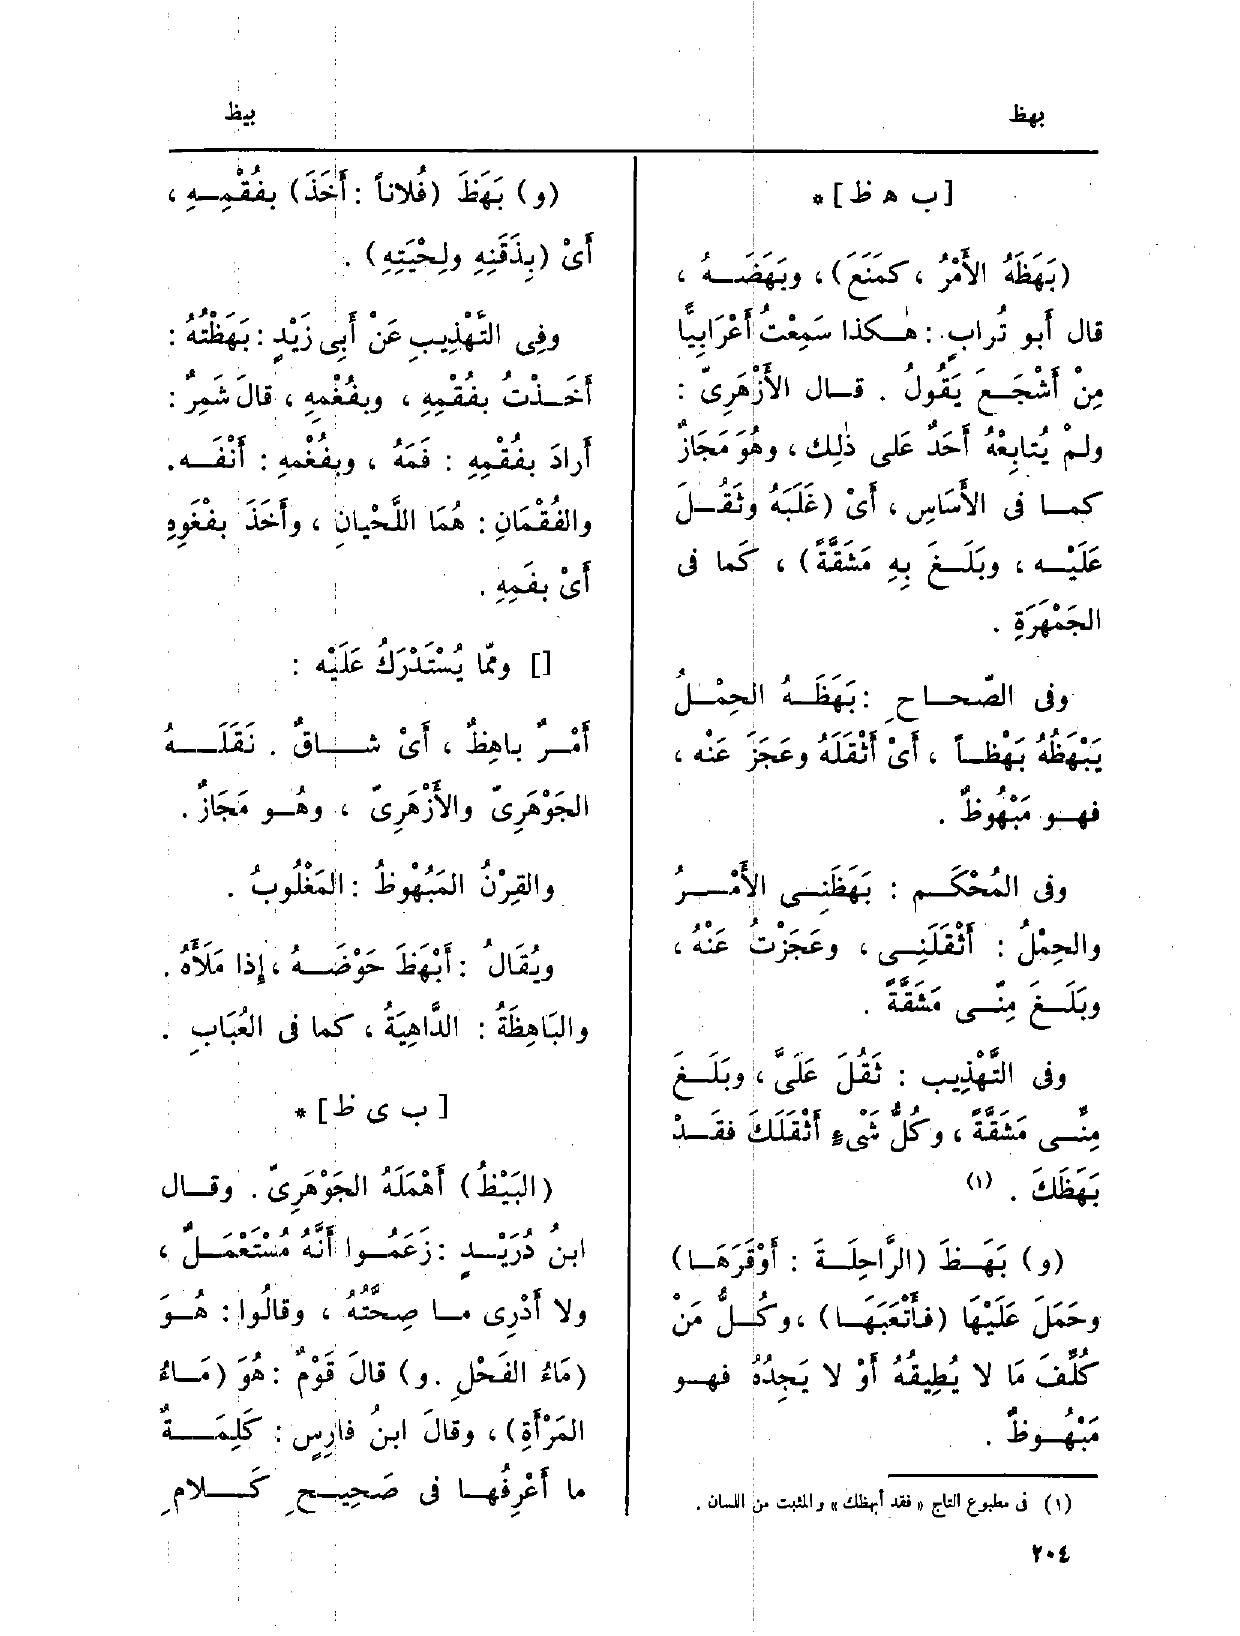 بهظ
بيظ
[ ب ه ظ ] *
(بَهَظَهُ الأَمْرُ ، كمَنَعَ) ، وبَهَضَــهُ ،
قال أبو تُرابٍ : هٰـكذا سَمِعْتُ أَعْرَابِيًّا
مِنْ أَشْجَـعَ يَقُولُ . قـال الأَزْهَرِىّ :
ولمْ يُتابِعْهُ أَحَدٌ على ذٰلِك ، وهُوَ مَجَازٌ
كمـا فى الأَسَاسِ ، أَىْ (غَلَبَهُ وثَقُـلَ
عَلَيْـه ، وبَلَـغَ بِهِ مَشَقَّةً) ، كَما فى
الجَمْهَرَةِ .
وفى الصّحـاحِ : بَهَظَـهُ الحِمْـلُ
يَبْهَظُهُ بَهْظـاً ، أَىْ أَثْقَلَهُ وعَجَزَ عَنْه ،
فهـو مَبْهُوظٌ .
وفى المُحْكَـم : بَهَظَنِـى الأَمْـرُ
والحِمْلُ : أَثْقَلَنِـى ، وعَجَزْتُ عَنْهُ ،
وبَلَـغَ مِنِّـى مَشَقَّةً .
وفى التَّهْذِيب : ثَقُلَ عَلَىَّ ، وبَلَـغَ
مِنِّـى مَشَقَّةً ، وكُلُّ شَىءٍ أَثْقَلَكَ فقَـدْ
بَهَظَكَ . (١)
(و) بَهَـظَ (الرَّاحِلَـةَ : أَوْقَرَهَـا)
وحَمَلَ عَلَيْهَا (فـأَتْعَبَهَـا) ، وكُـلُّ مَنْ
كُلِّفَ مَا لا يُطِيقُهُ أَوْ لا يَجِدُهُ فهـو
مَبْهُـوظٌ .
(١) فى مطبوع التاج « فقد أبهظك » والمثبت من اللسان .
٢٠٤
(و) بَهَظَ (فُلاناً : أَخَذَ) بفُقْمِـهِ ،
أَىْ (بِذَقَنِهِ ولِحْيَتِهِ) .
وفِى التَّهْذِيبِ عَنْ أَبِى زَيْدٍ : بَهَظْتُهُ :
أَخَـذْتُ بفُقْمِهِ ، وبفُغْمِهِ ، قالَ شَمِرٌ :
أَرادَ بفُقْمِهِ : فَمَهُ ، وبفُغْمِهِ : أَنْفَـه.
والفُقْمَانِ : هُمَا اللَّحْيانِ ، وأَخَذَ بفَغْوِهِ
أَىْ بفَمِهِ .
[] وممّا يُسْتَدْرَكُ عَلَيْه :
أَمْـرٌ باهِظٌ ، أَىْ شـاقٌّ . نَقَلَـهُ
الجَوْهَرِىّ والأَزْهَرِىّ ، وهُـو مَجَازٌ .
والقِرْنُ المَبْهُوظُ : المَغْلُوبُ .
ويُقَالُ : أَبْهَظَ حَوْضَـهُ ، إذا مَلَأَهُ .
والبَاهِظَةُ : الدَّاهِيَةُ ، كما فى العُبَابِ .
[ ب ى ظ ] *
(البَيْظُ) أَهْمَلَهُ الجَوْهَرِىّ . وقـال
ابنُ دُرَيْـدٍ : زَعَمُـوا أَنَّهُ مُسْتَعْمَـلٌ ،
ولا أَدْرِى مـا صِحَّتُهُ ، وقالُوا : هُـوَ
(مَاءُ الفَحْلِ . و) قالَ قَوْمٌ : هُوَ (مَـاءُ
المَرْأَةِ) ، وقالَ ابنُ فارِسٍ : كَلِمَـةٌ
ما أَعْرِفُهـا فى صَحِيـحِ كَـلامِ